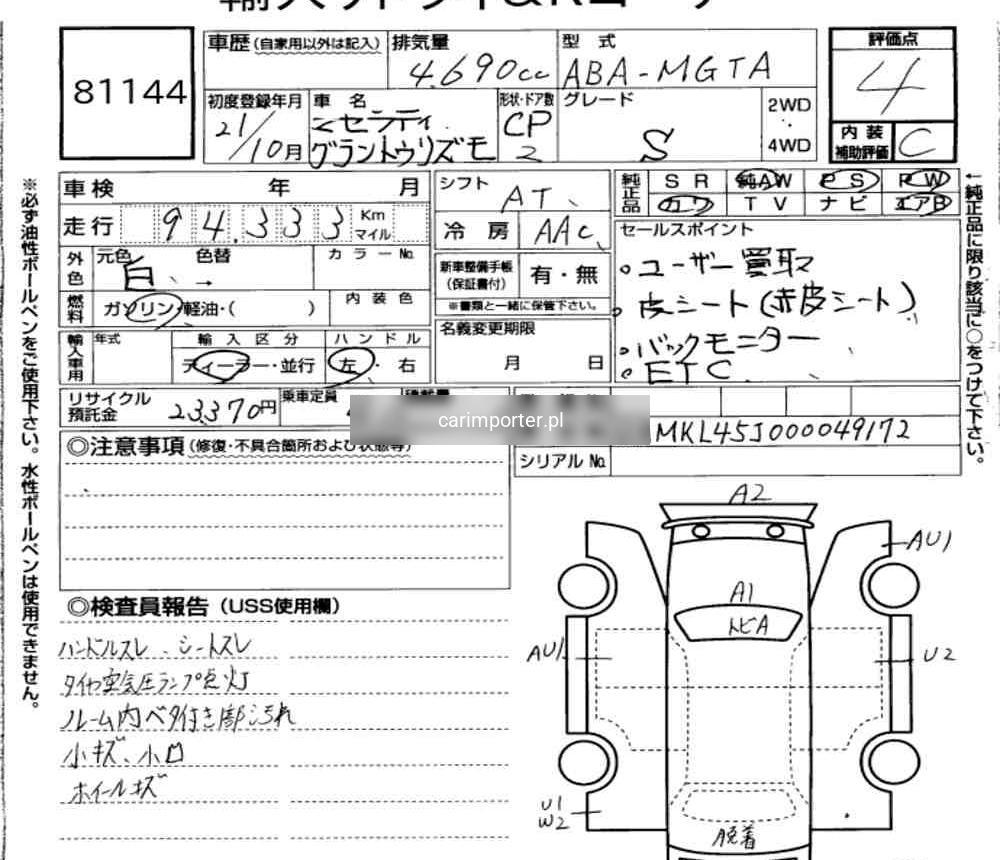 81144
車歴 (自家用以外は記入)
排気量
4.690cc
型 式
ABA-MGTA
評価点
4
内装
補助評価
C
初度登録年月
21/10月
車 名
グラントゥリズモ
形状・ドア数
CP
2
グレード
S
2WD
・
4WD
車検 年 月
走行 94.333 Km
マイル
外色
元色
白、→
色替
カラーNo.
燃料
ガソリン・軽油・( )
内装色
輸入車用
年式
輸入区分
ディーラー・並行
ハンドル
左・右
リサイクル
預託金
23370円
乗車定員
シフト
AT
冷房
AAC
新車整備手帳
(保証書付)
有・無
※書類と一緒に保管下さい。
名義変更期限
月 日
純正品
SR 純AW PS PW
カワ TV ナビ エアB
セールスポイント
。ユーザー買取
。皮シート(赤皮シート)
。バックモニター
。ETC
carimporter.pl
MKL45J000049172
シリアルNo.
◎注意事項 (修復・不具合箇所および状態等)
◎検査員報告 (USS使用欄)
ハンドルスレ、シートスレ
タイヤ空気圧ランプ点灯
ルーム内ベタ付き部汚れ
小キズ、小凹
ホイールキズ
A2
AU1
A1
トビA
AU1
U2
U1
W2
脱着
※必ず油性ボールペンをご使用下さい。水性ボールペンは使用できません。
←純正品に限り該当に○をつけて下さい。